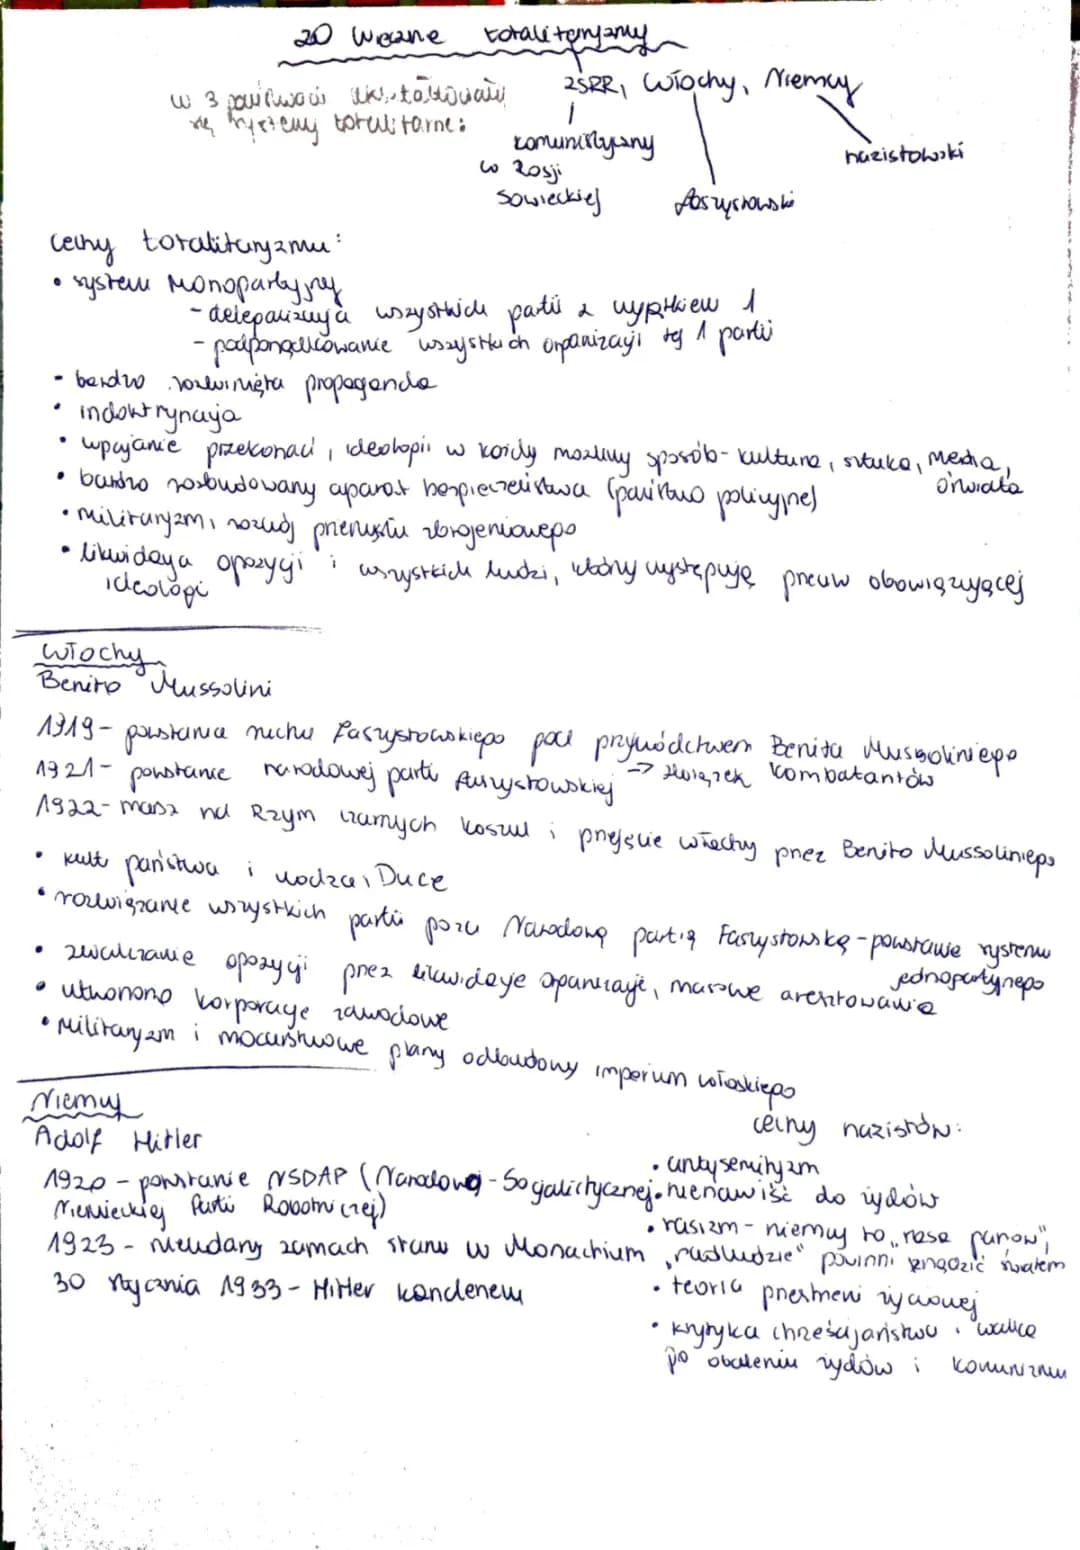 20 wieczne totalitaryzmy
w 3 państwach ukształtowały
się systemy totalitarne:
ZSRR, Włochy, Niemcy
komunistyczny
w Rosji
Sowieckiej
faszystowski
nazistowski
cechy totalitaryzmu:
• system monopartyjny
- delegalizacja wszystkich partii z wyjątkiem 1
- podporządkowanie wszystkich organizacji tej 1 partii
- bardzo rozwinięta propaganda
• indoktrynacja
• wpajanie przekonań, ideologii w każdy możliwy sposób - kultura, sztuka, media,
oświata
• bardzo rozbudowany aparat bezpieczeństwa (państwo policyjne)
• militaryzm, rozwój przemysłu zbrojeniowego
• likwidacja opozycji i wszystkich ludzi, którzy występują przeciw obowiązującej
ideologi
Włochy
Benito Mussolini
1919 - powstanie ruchu faszystowskiego pod przywództwem Benita Mussoliniego
-> związek kombatantów
1921 - powstanie narodowej partii faszystowskiej
1922 - marsz na Rzym czarnych koszul i przejęcie władzy przez Benito Mussoliniego
• kult państwa i wodza, Duce
• rozwiązanie wszystkich partii poza Narodową partią Faszystowską - powstanie systemu
jednopartyjnego
• zwalczanie opozycji przez likwidację organizacji, masowe aresztowania
• utworzono korporacje zawodowe
• militaryzm i mocarstwowe plany odbudowy imperium włoskiego
Niemcy
Adolf Hitler
1920 - powstanie NSDAP (Narodowo-Socjalistycznej
Niemieckiej Partii Robotniczej)
1923 - nieudany zamach stanu w Monachium
30 stycznia 1933 - Hitler kanclerzem
cechy nazistów:
• antysemityzm
• nienawiść do żydów
• rasizm - niemcy to "rasa panów",
"nadludzie" powinni rządzić światem
• teoria przestrzeni życiowej
• krytyka chrześcijaństwa i walka
po obaleniu żydów i komunizmu